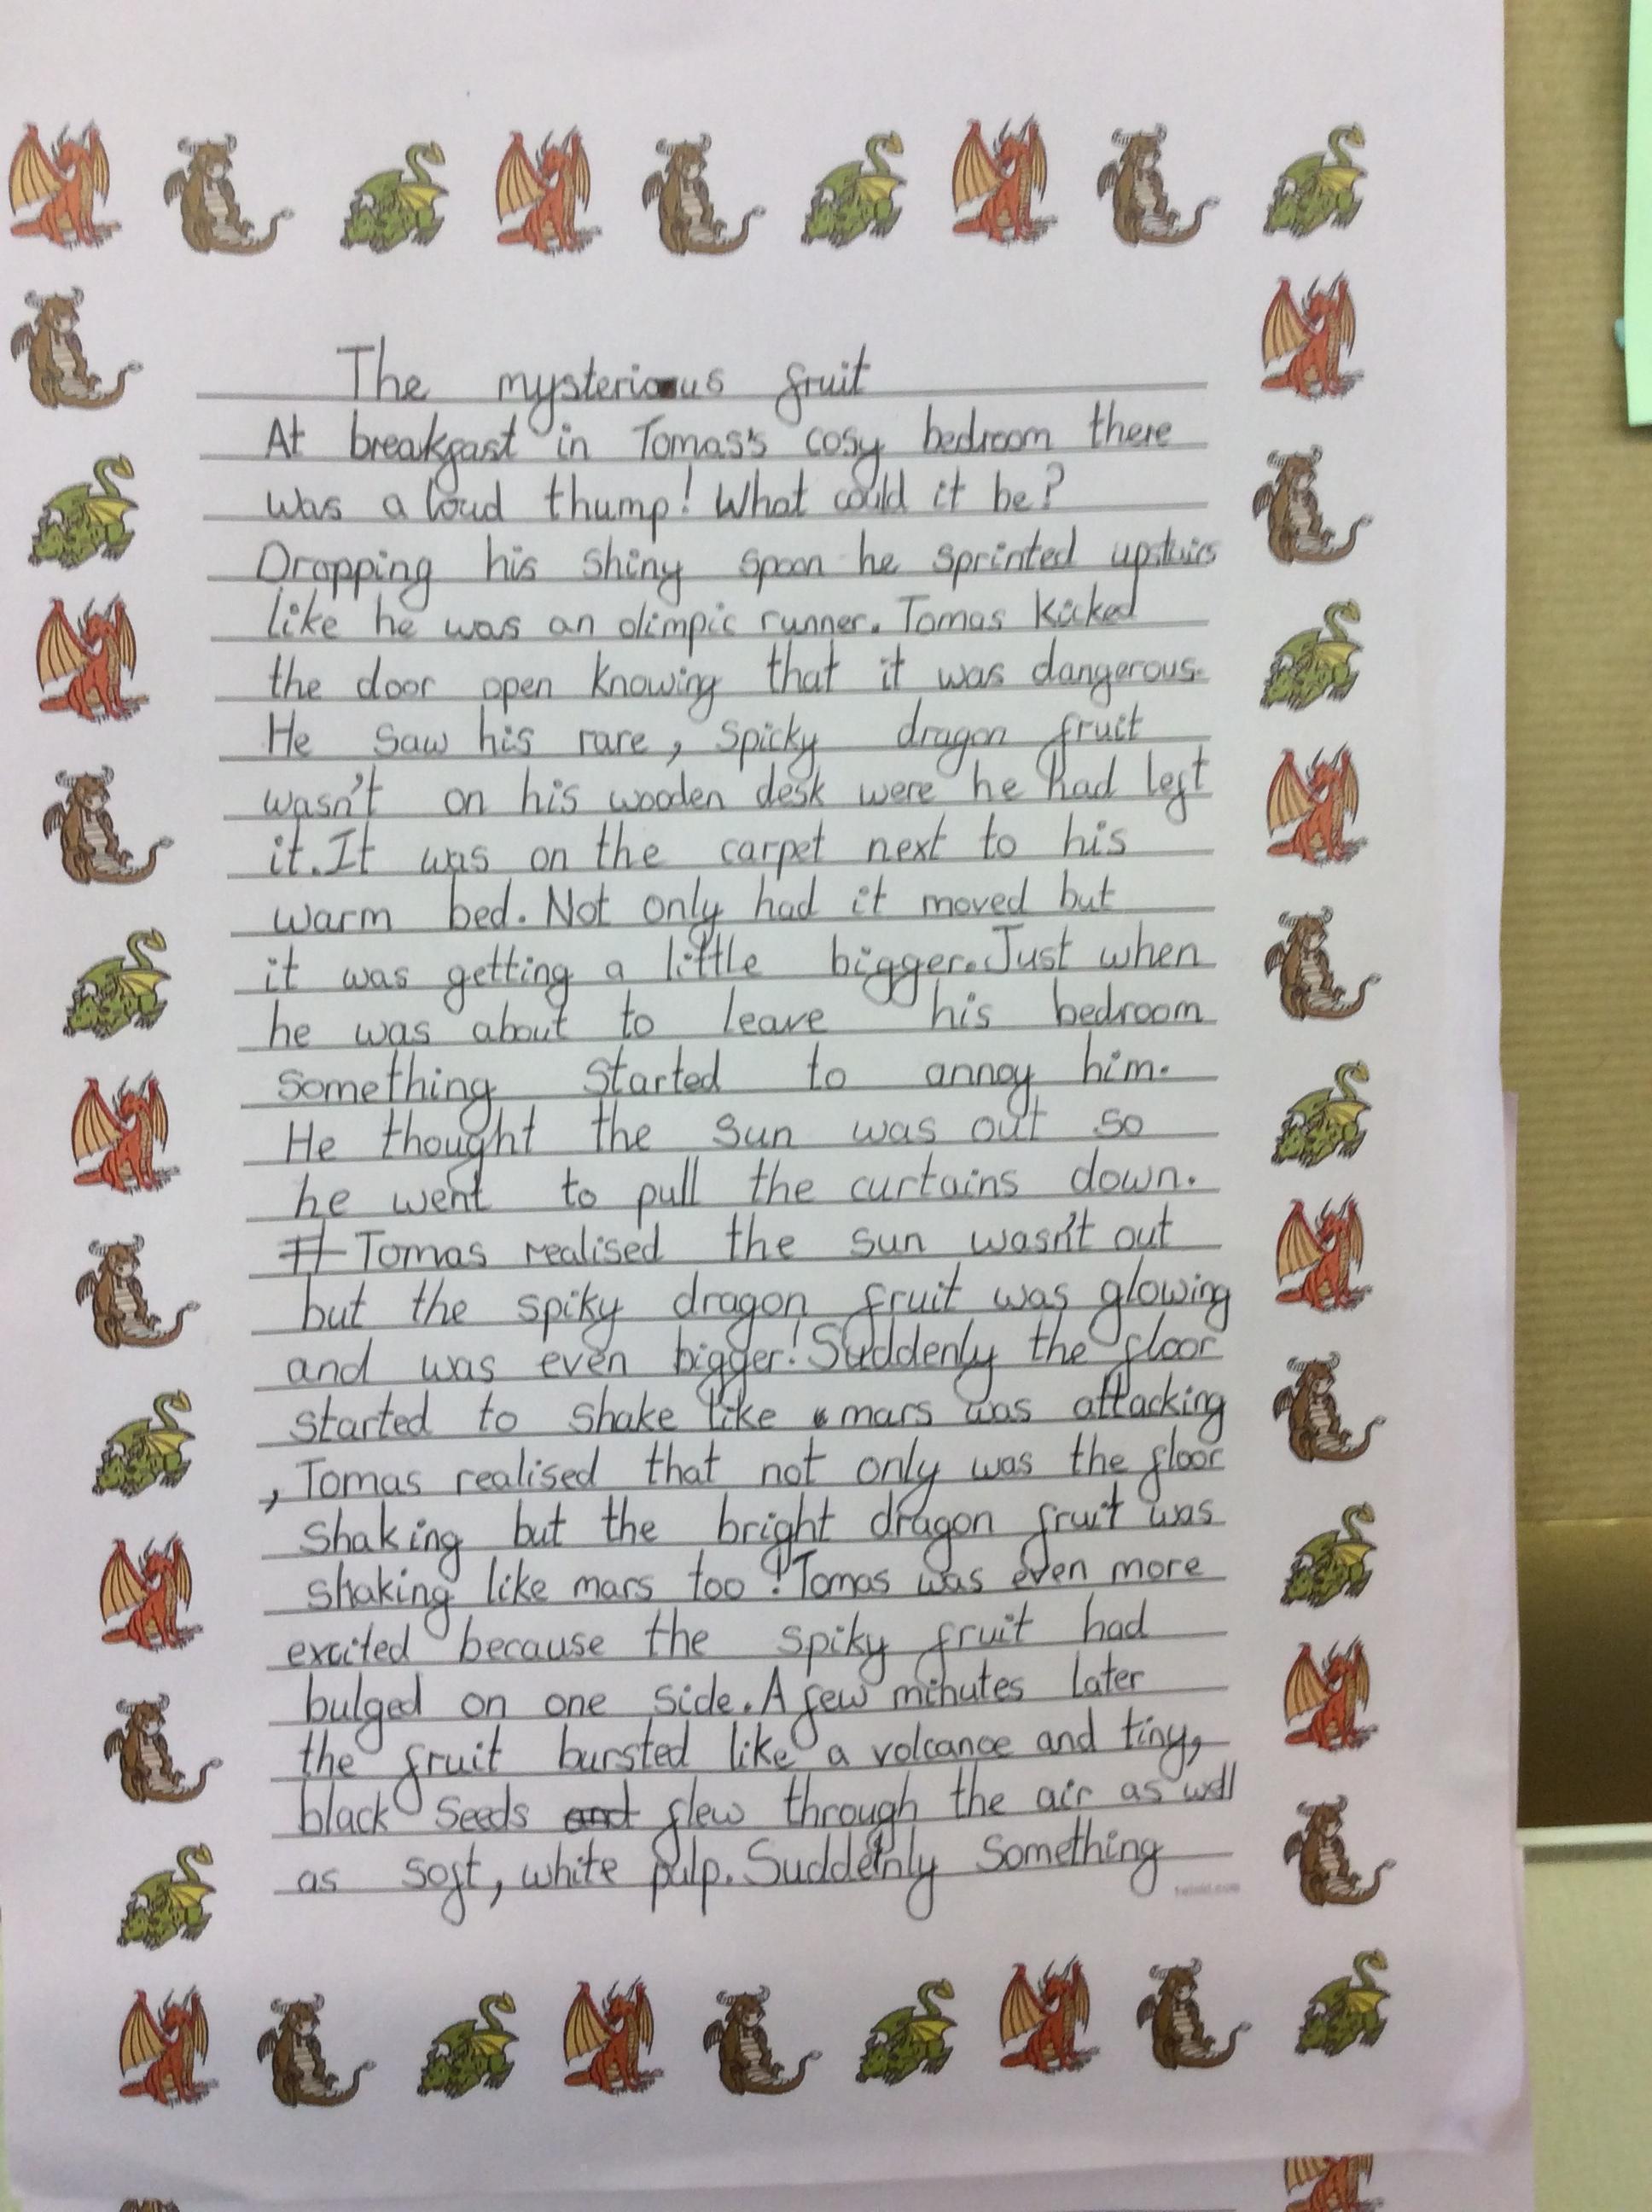 The mysterious fruit
At breakfast in Tomas's cosy bedroom there
was a loud thump! What could it be?
Dropping his shiny spoon he sprinted upstairs
like he was an olimpic runner. Tomas kicked
the door open knowing that it was dangerous.
He saw his rare, spicky dragon fruit
wasn't on his wooden desk were he had left
it. It was on the carpet next to his
warm bed. Not only had it moved but
it was getting a little bigger. Just when
he was about to leave his bedroom
something started to annoy him.
He thought the sun was out so
he went to pull the curtains down.
Tomas realised the sun wasn't out
but the spiky dragon fruit was glowing
and was even bigger! Suddenly the floor
started to shake like mars was attacking
, Tomas realised that not only was the floor
shaking but the bright dragon fruit was
shaking like mars too! Tomas was even more
excited because the spiky fruit had
bulged on one side. A few minutes later
the fruit bursted like a volcanoe and tiny,
black seeds and flew through the air as well
as soft, white pulp. Suddenly something
twinkl.com